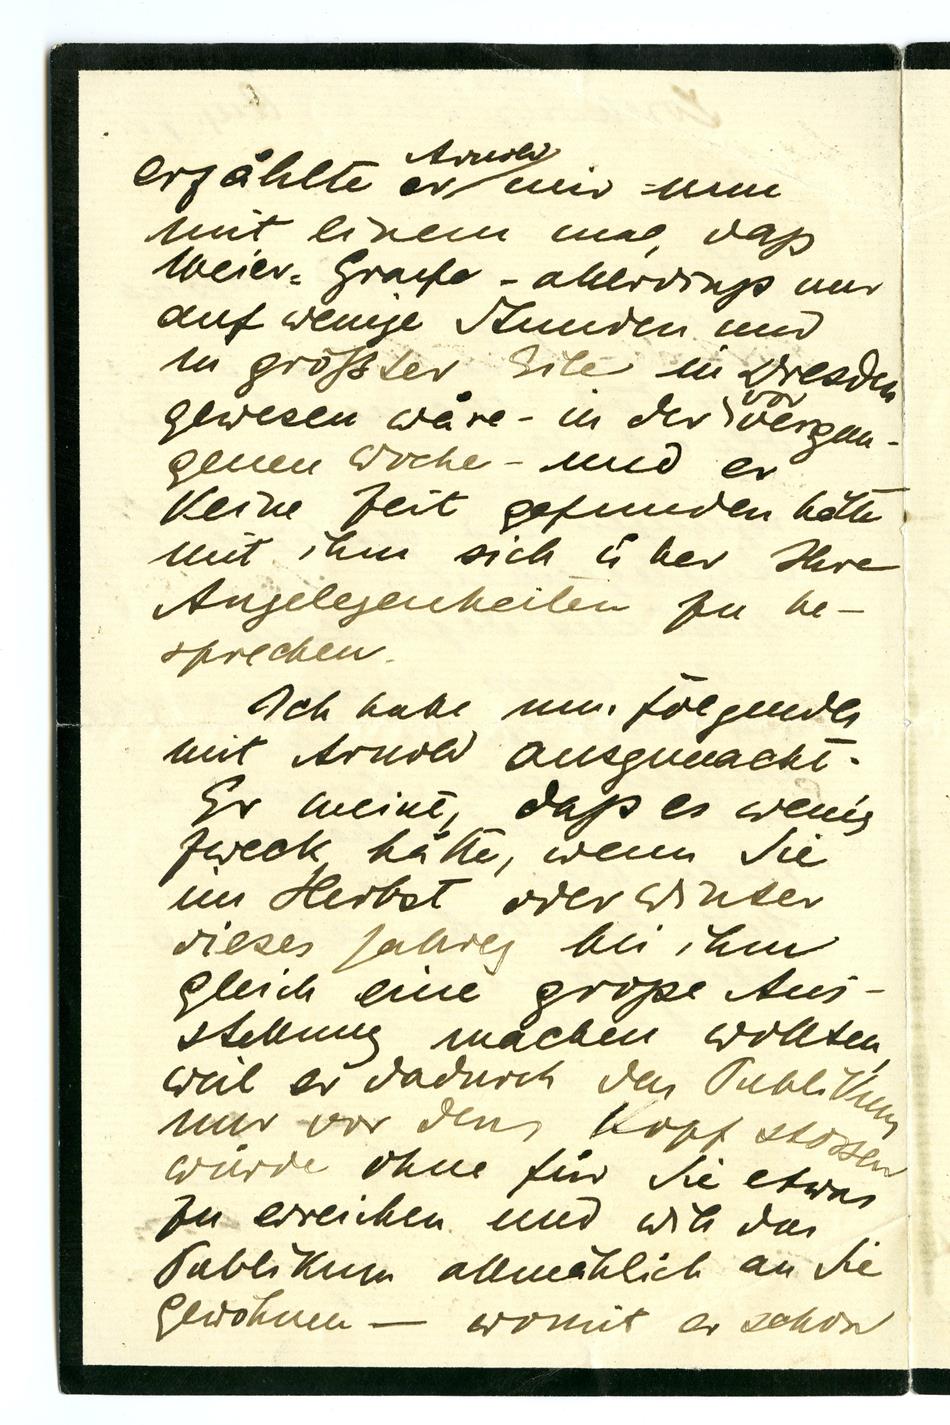 erzählte er Arnold mir nun
mit einem mal, daß
Meier-Graefe - allerdings nur
auf wenige Stunden und
in größster Eile in Dresden
gewesen wäre - in der vor vergan-
genen Woche - und er
keine Zeit gefunden hätte
mit ihm sich über Ihre
Angelegenheiten zu be-
sprechen.
Ich habe nun folgendes
mit Arnold ausgemacht.
Er meint, daß es wenig
Zweck hätte, wenn Sie
im Herbst oder Winter
dieses Jahres bei ihm
gleich eine große Aus-
stellung machen wollten,
weil er dadurch das Publikum
nur vor den Kopf stossen
würde ohne für Sie etwas
zu erreichen und will das
Publikum allmählich an Sie
gewöhnen — womit er schon